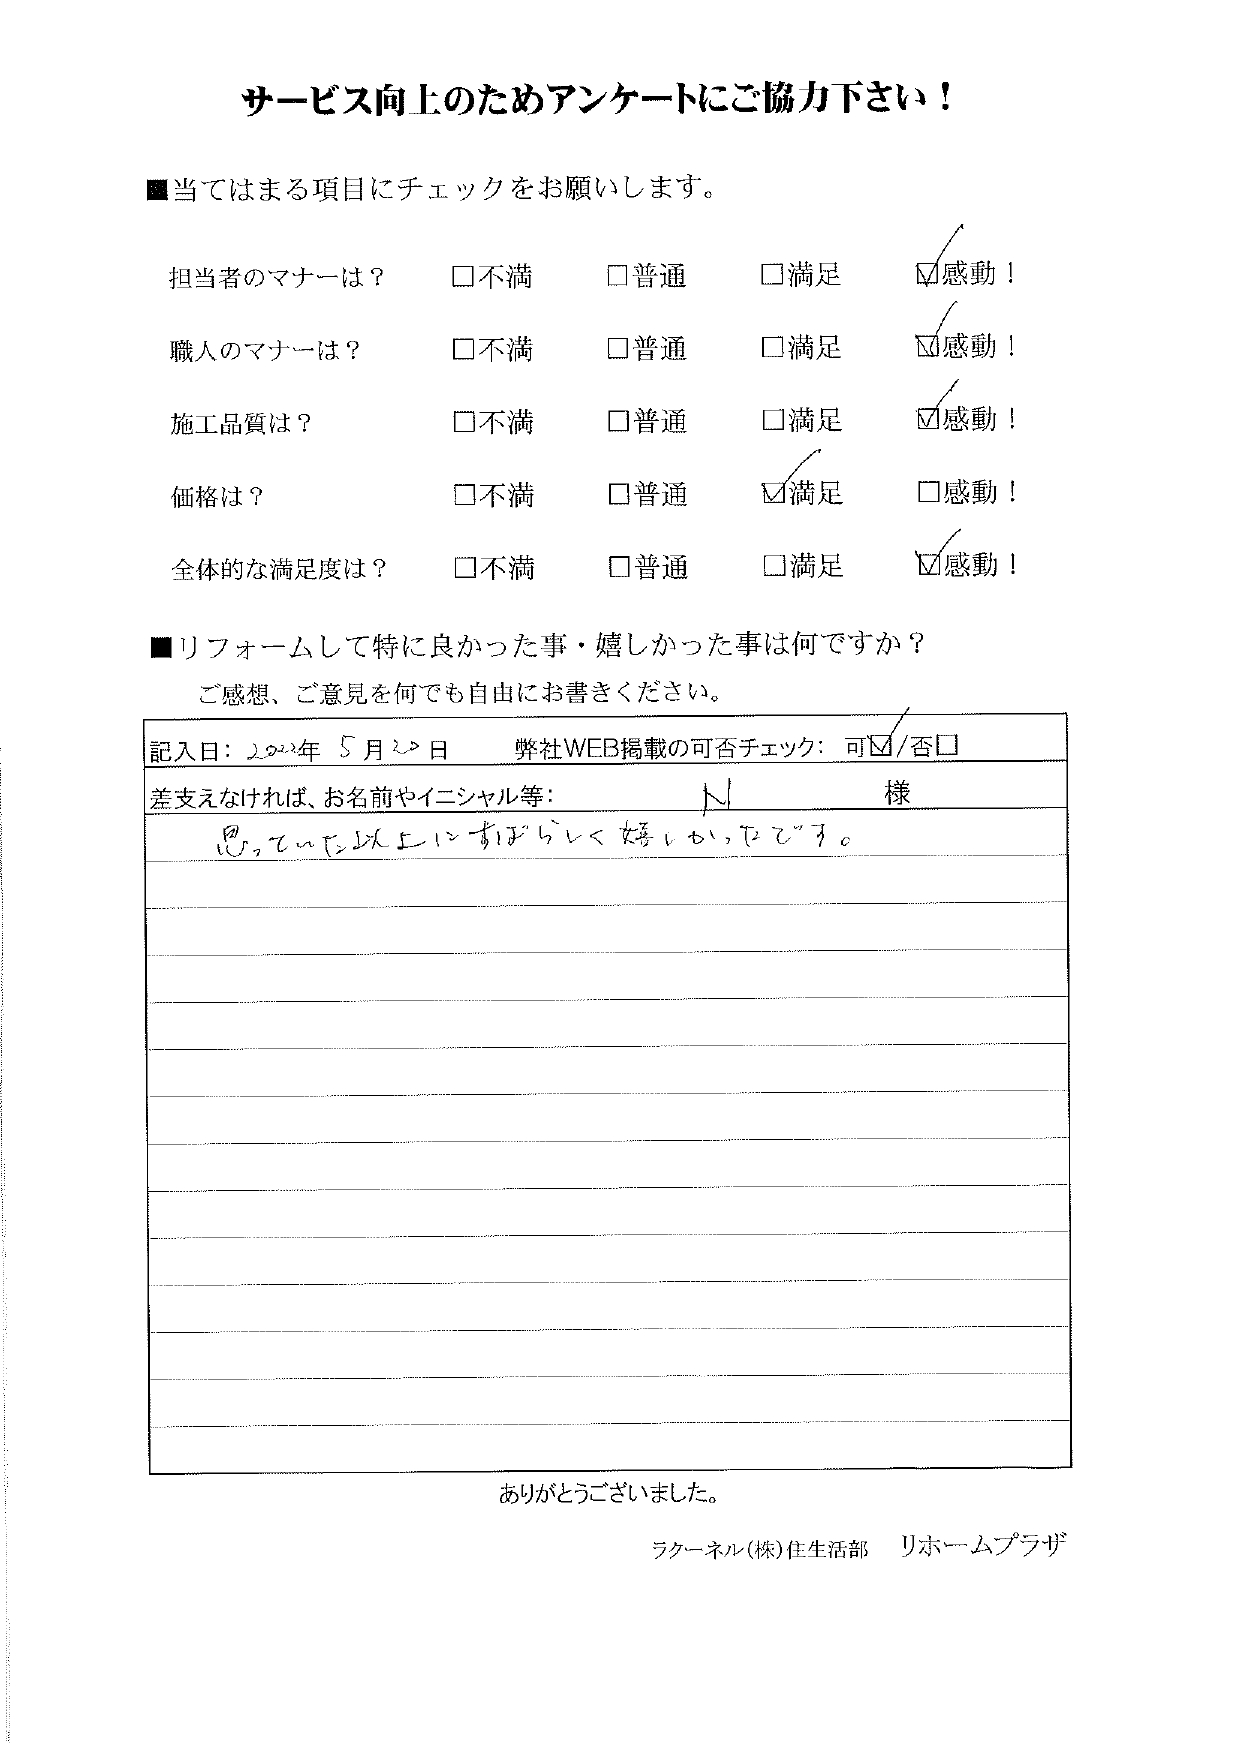 サービス向上のためアンケートにご協力下さい！
■当てはまる項目にチェックをお願いします。
担当者のマナーは？ □不満 □普通 □満足 ☑感動！
職人のマナーは？ □不満 □普通 □満足 ☑感動！
施工品質は？ □不満 □普通 □満足 ☑感動！
価格は？ □不満 □普通 ☑満足 □感動！
全体的な満足度は？ □不満 □普通 □満足 ☑感動！
■リフォームして特に良かった事・嬉しかった事は何ですか？
ご感想、ご意見を何でも自由にお書きください。
記入日：2022年 5月20日 弊社WEB掲載の可否チェック：可☑/否□
差支えなければ、お名前やイニシャル等： N 様
思っていた以上にすばらしく嬉しかったです。
ありがとうございました。
ラクーネル（株）住生活部 リホームプラザ